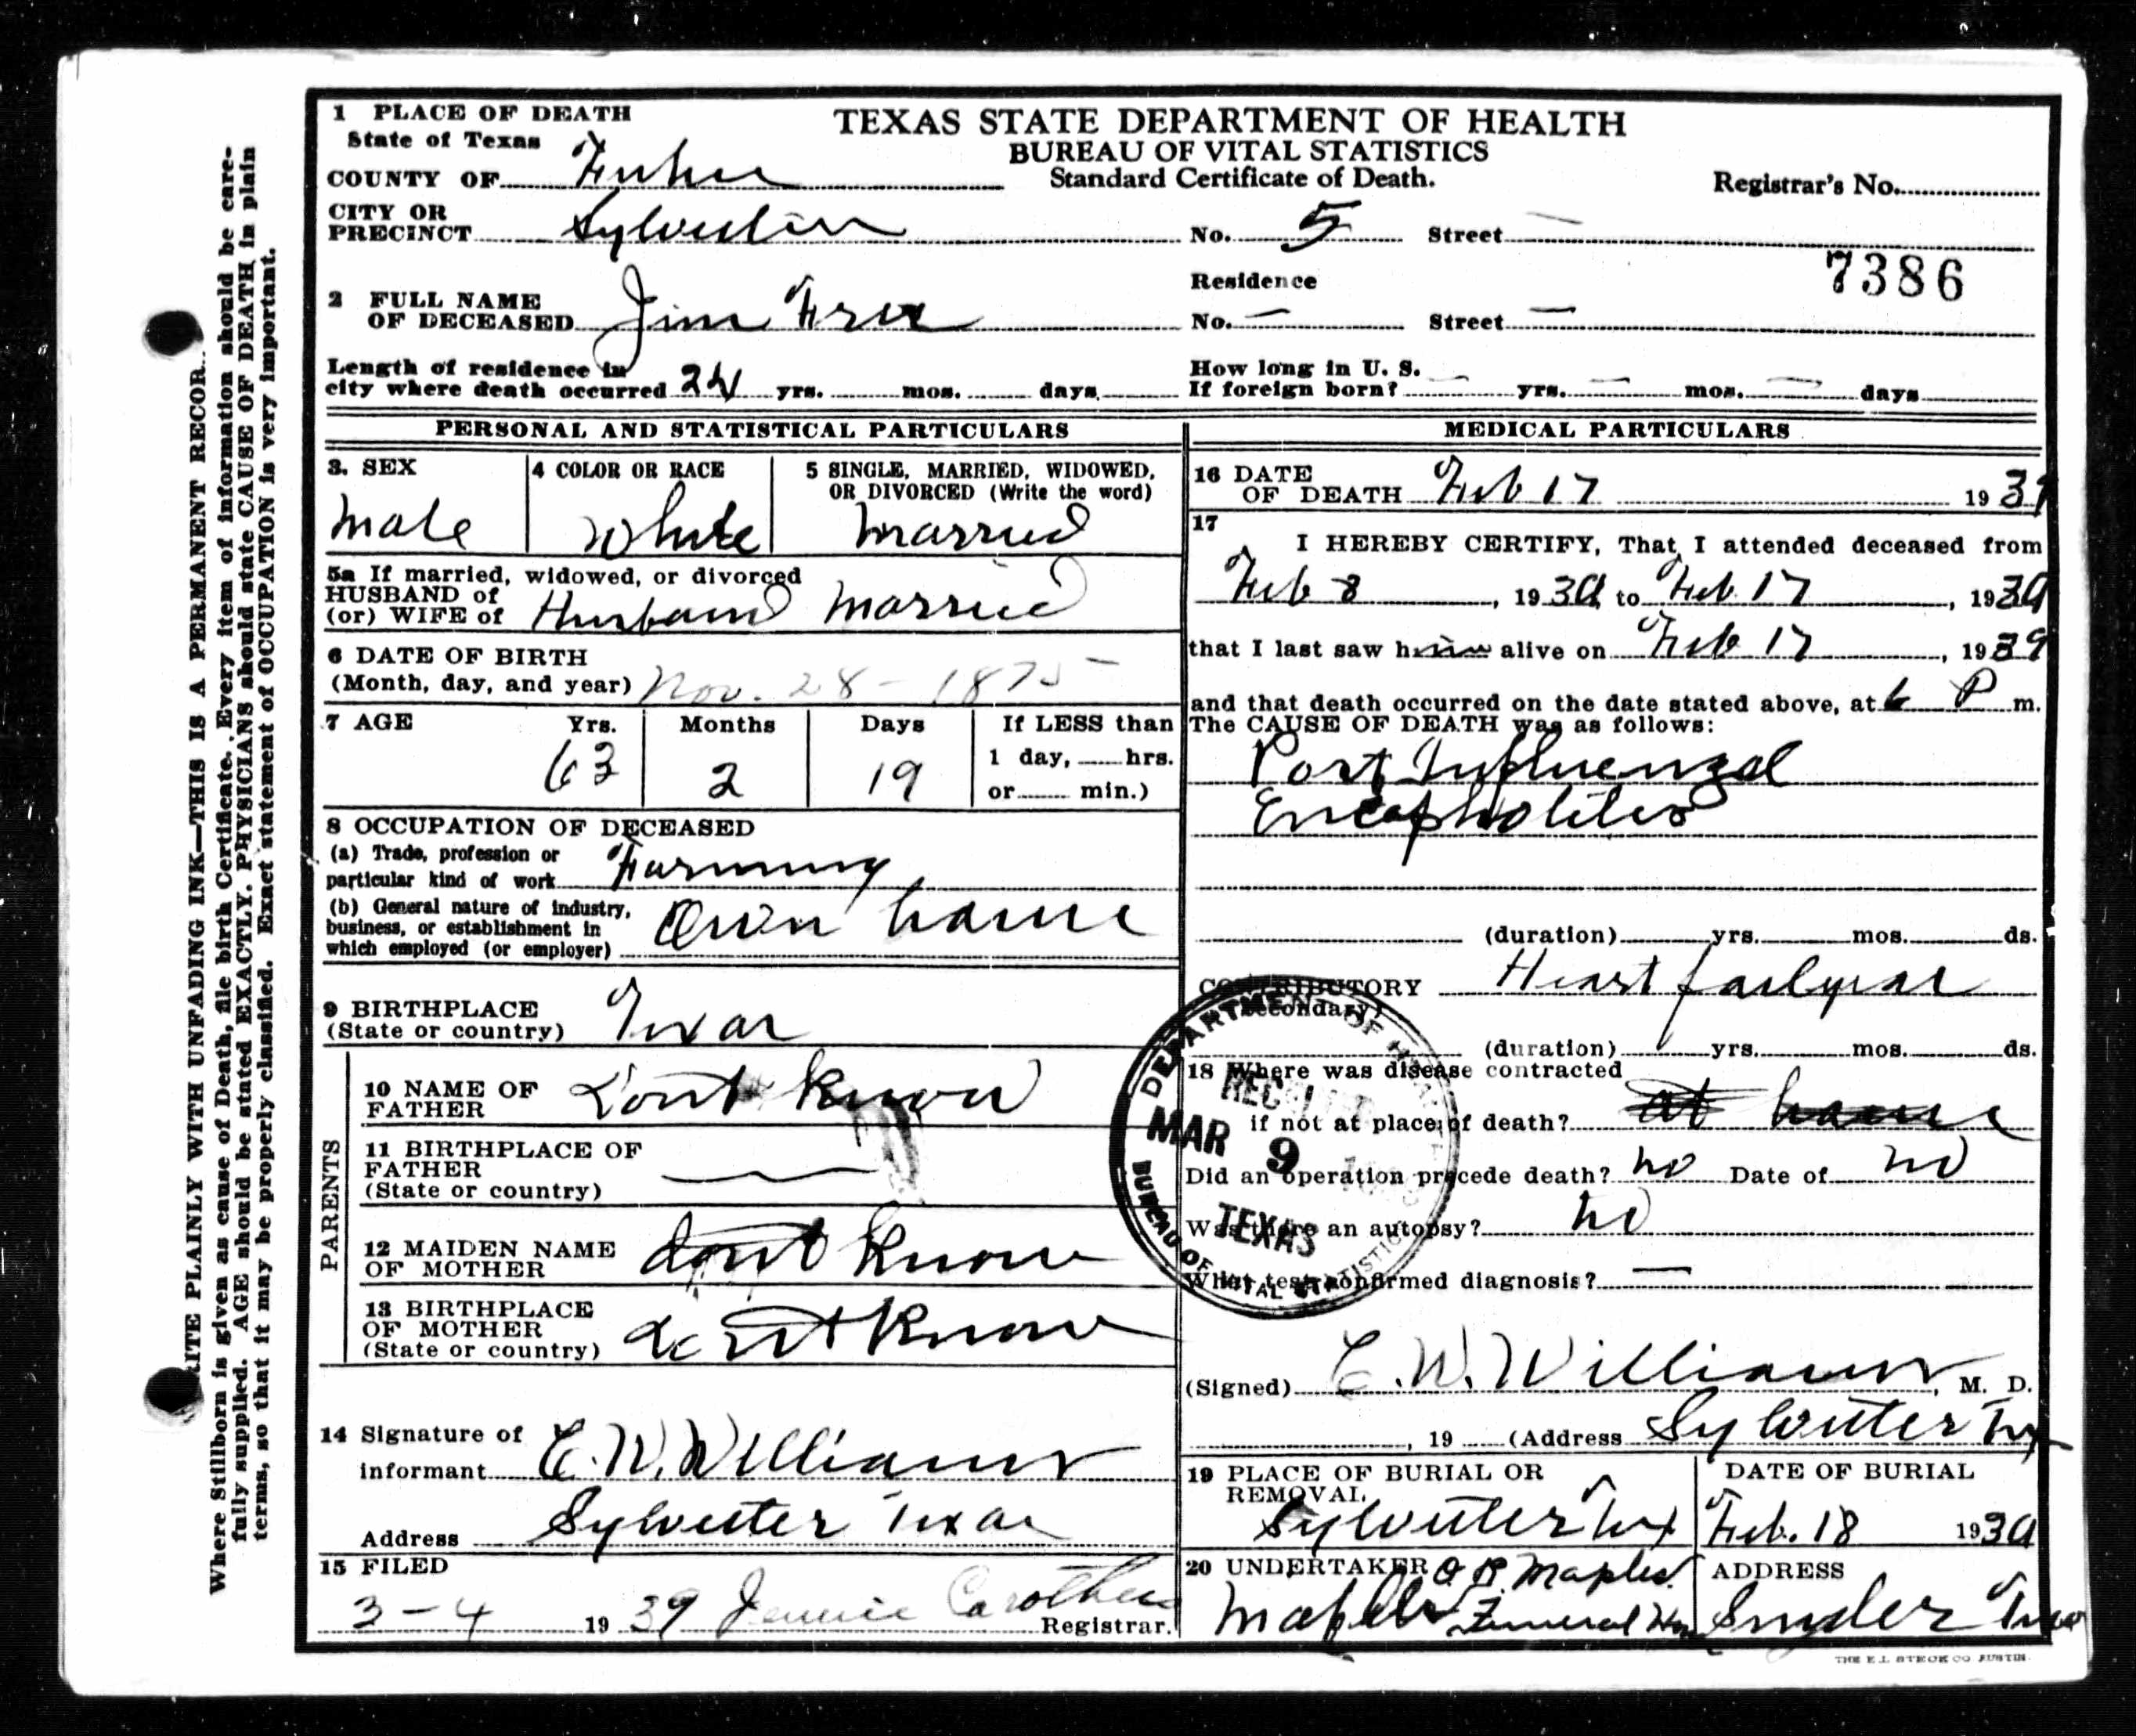 1 PLACE OF DEATH
State of Texas
COUNTY OF Fisher
TEXAS STATE DEPARTMENT OF HEALTH
BUREAU OF VITAL STATISTICS
Standard Certificate of Death.
Registrar's No.
CITY OR PRECINCT Sylvester No. 5 Street —
7386
2 FULL NAME OF DECEASED Jim
Residence
No. — Street —
Length of residence in city where death occurred 24 yrs. mos. days.
How long in U. S. If foreign born? — yrs. — mos. — days
PERSONAL AND STATISTICAL PARTICULARS
3. SEX
Male
4 COLOR OR RACE
White
5 SINGLE, MARRIED, WIDOWED, OR DIVORCED (Write the word)
Married
5a If married, widowed, or divorced
HUSBAND of
(or) WIFE of Husband Married
6 DATE OF BIRTH
(Month, day, and year) Nov. 28 - 1875 -
7 AGE Yrs. Months Days If LESS than
63 2 19 1 day, hrs.
or min.)
8 OCCUPATION OF DECEASED
(a) Trade, profession or
particular kind of work Farming
(b) General nature of industry,
business, or establishment in
which employed (or employer) Own home
9 BIRTHPLACE
(State or country) Texas
PARENTS
10 NAME OF FATHER Dont Know
11 BIRTHPLACE OF FATHER
(State or country) —
12 MAIDEN NAME OF MOTHER dont Know
13 BIRTHPLACE OF MOTHER
(State or country) dont Know
14 Signature of
informant E. W. Williams
Address Sylvester Texas
15 FILED
3-4 1939 Jennie Carothers Registrar.
MEDICAL PARTICULARS
16 DATE OF DEATH Feb 17 1939
17
I HEREBY CERTIFY, That I attended deceased from
Feb 8, 1939 to Feb 17, 1939
that I last saw him alive on Feb 17, 1939
and that death occurred on the date stated above, at 6 P m.
The CAUSE OF DEATH was as follows:
Post Influenzal
Encapholites
(duration) yrs. mos. ds.
CONTRIBUTORY Heart failyear
(Secondary)
(duration) yrs. mos. ds.
18 Where was disease contracted
if not at place of death? at home
Did an operation precede death? no Date of no
Was there an autopsy? no
What test confirmed diagnosis? —
DEPARTMENT OF HEALTH
MAR 9
TEXAS
BUREAU OF VITAL STATISTICS
(Signed) E. W. Williams, M. D.
, 19 (Address Sylvester Tex
19 PLACE OF BURIAL OR REMOVAL
Sylvester Tex
DATE OF BURIAL
Feb. 18 1939
20 UNDERTAKER O. P. Maples
Maples Funeral Home
ADDRESS
Snyder Texas
THE E.L. STECK CO AUSTIN
RITE PLAINLY WITH UNFADING INK—THIS IS A PERMANENT RECOR
Where Stillborn is given as cause of Death, file birth Certificate. Every item of information should be care-
fully supplied. AGE should be stated EXACTLY. PHYSICIANS should state CAUSE OF DEATH in plain
terms, so that it may be properly classified. Exact statement of OCCUPATION is very important.